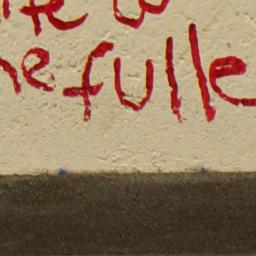 ife w
he fulle